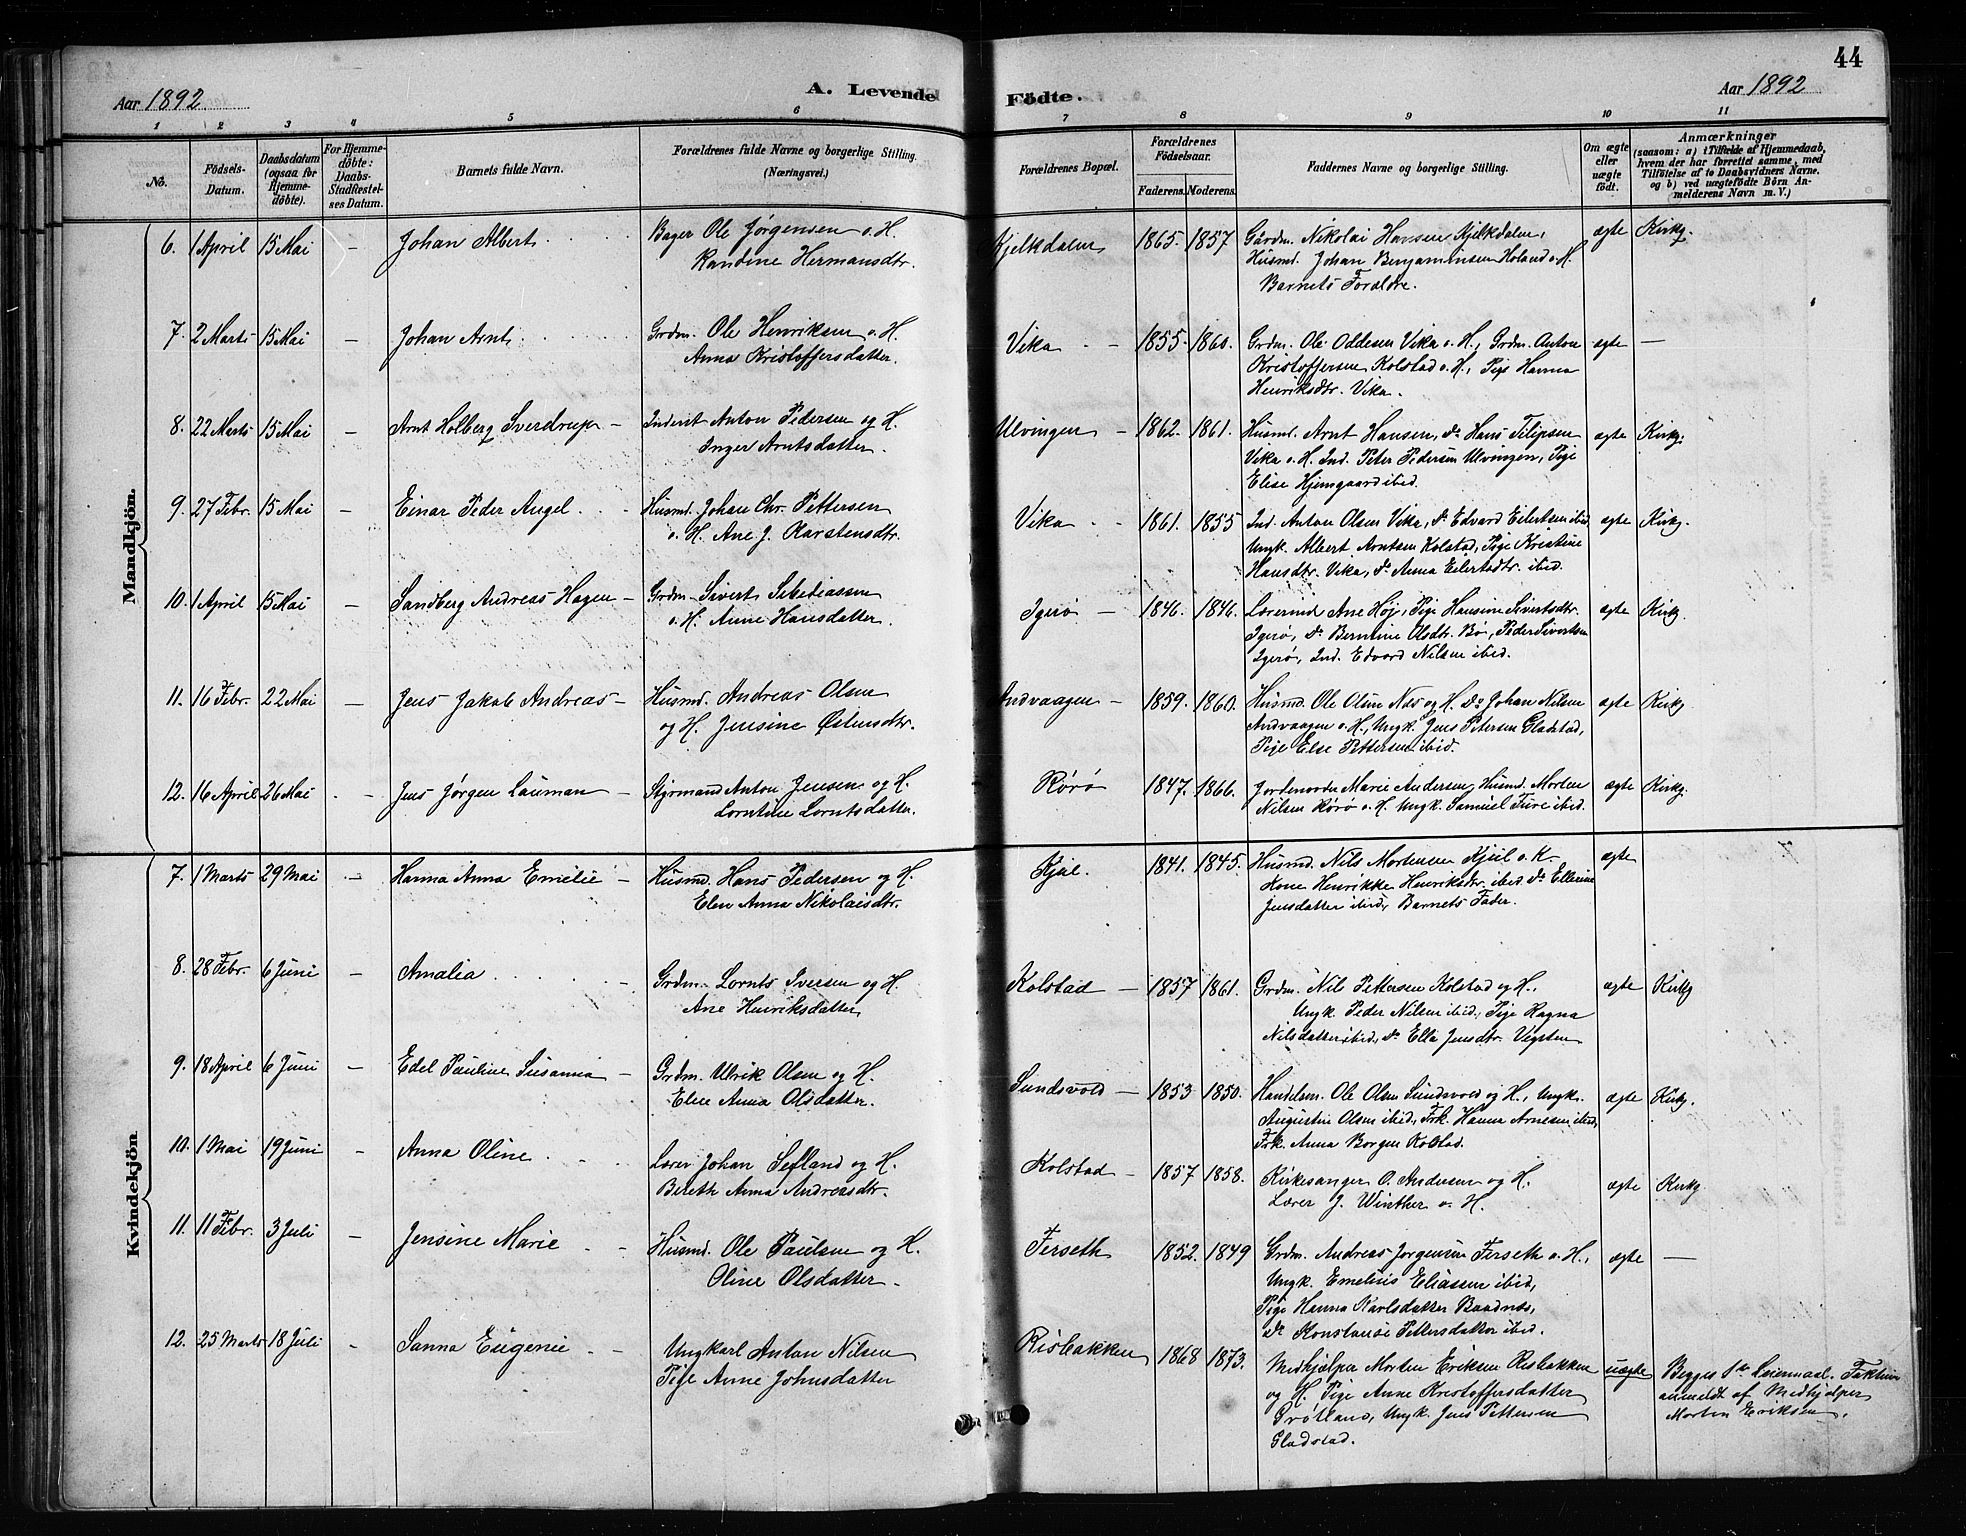 44
Aar 1892
A. Levende Födte.
Aar 1892
1 2 3 4 5 6 7 8 9 10 11
No.
Födsels-Datum.
Daabsdatum (ogsaa for Hjemme-döbte).
For Hjemme-döbte: Daabs-Stadfæstel-ses Datum.
Barnets fulde Navn.
Forældrenes fulde Navne og borgerlige Stilling. (Næringsvei.)
Forældrenes Bopæl.
Forældrenes Födselsaar.
Faderens. Moderens.
Faddernes Navne og borgerlige Stilling.
Om ægte eller uægte födt.
Anmærkninger
(saasom: a) i Tilfælde af Hjemmedaab, hvem der har forrettet samme, med Tilföielse af to Daabsvidners Navne. og b) ved uægtefödte Börn An-melderens Navn m. V.)
Mandkjön.
6. 1 April 15 Mai – Johan Albert Bager Ole Jørgensen o. H. Kjelkdalen 1865. 1857 Gårdm. Nikolai Hansen Kjelkdalen, ægte Kirkg.
Randine Hermansdtr. Husmd. Johan Benjaminsen Holand o. H.
Barnets Forældre.
7. 2 Marts 15 Mai – Johan Arnt Grdm. Ole Henriksen o. H. Vika 1855. 1860. Grdm. Ole Oddesen Vika o. H., Grdm. Anton ægte –
Anna Kristoffersdatter. Kristoffersen Kolstad o. H., Pige Hanna
Henriksdtr. Vika.
8. 22 Marts 15 Mai – Arnt Holberg Sverdrup – Inderst Anton Pedersen og H. Ulvingen – 1862. 1861. Husmd. Arnt Hansen, do Hans Filipsen ægte Kirkg.
Inger Arntsdatter. Vika o. H. Ind. Peter Pedersen Ulvingen, Pige
Elise Hjemgaard ibid.
9. 27 Febr. 15 Mai – Einar Peder Angel. Husmd. Johan Chr. Pettersen Vika 1861. 1855 Ind. Anton Olsen Vika, do Edvard Eilertsen ibid. ægte Kirkg.
o. H. Ane J. Karstensdtr. Ungk. Albert Arntsen Kolstad, Pige Kristine
Hansdtr. Vika, do Anna Eilertsdtr. ibid.
10. 1 April 15 Mai – Sandberg Andreas Hagen – Grdm. Sivert Sebediassen Igerø – 1846. 1846. Lærerind Ane Høj, Pige Hansine Sivertsdtr. ægte Kirkg.
o. H. Anne Hansdatter. Igerø, do Berntine Olsdtr. Bø, Peder Sivertsen
Igerø, Ind. Edvard Nilsen ibid.
11. 16 Febr. 22 Mai – Jens Jakob Andreas – Husmd. Andreas Olsen Andvaagen – 1859. 1860. Husmd. Ole Olsen Nes og H. do Johan Nilsen ægte Kirkg
og H. Jensine Østensdtr. Andvaagen o. H., Ungk. Jens Petersen Gladstad,
Pige Else Pettersen ibid.
12. 16 April 26 Mai – Jens Jørgen Lauman – Styrmand Anton Jensen og H. Rørø 1847. 1866. Jordemoder Marie Andersen, Husmd. Morten ægte Kirkg.
Lorntine Lorntsdatter. Nilsen Rørø o. H. Ungk. Samuel Ture ibid.
Kvindekjön.
7. 1 Marts 29 Mai – Hanna Anna Emelie – Husmd. Hans Pedersen og H. Kjul. 1841. 1845. Husmd. Nils Mortensen Kjul o. K. ægte
Elen Anna Nikolaisdtr. Kone Henrikke Henriksdtr. ibid. do Ellerine
Jensdatter ibid, Barnets Fader.
8. 28 Febr. 6 Juni – Amalia Grdm. Lornts Iversen og H. Kolstad – 1857 1861. Grdm. Nils Pettersen Kolstad og H., ægte Kirkg
Ane Henriksdatter Ungk. Peder Nilsen ibid., Pige Ragna
Nilsdatter ibid, do Ella Jensdtr. Vegsten
9. 18 April 6 Juni – Edel Pauline Susanna – Grdm. Ulrik Olsen og H. Sundsvold – 1853 1850. Handelsm. Ole Olsen Sundsvold og H., Ungk. ægte Kirkg.
Elen Anna Olsdatter. Augustin Olsen ibid, Frk. Hanna Arnesen ibid,
Frk. Anna Borgen Kolstad.
10. 1 Mai 19 Juni – Anna Oline Lærer Johan Sefland og H. Kolstad – 1857 1858. Kirkesanger O. Andersen og H. ægte Kirkg
Bereth Anna Andreasdtr. Lærer J. Winther o. H.
11. 11 Febr. 3 Juli – Jensine Marie Husmd. Ole Paulsen og H. Ferseth 1852. 1849 Grdm. Andreas Jørgensen Ferseth o. H., ægte –
Oline Olsdatter – Ungk. Emelius Eliassen ibid,
Pige Hanna Karlsdatter Baadnes,
do Konstanse Pettersdatter ibid.
12. 25 Marts 18 Juli – Sanna Eugenie Ungkarl Anton Nilsen Risbakken 1868 1873. Medhjælper Morten Eriksen Risbakken uægte Begges 1ste Leiermaal. Faktum
Pige Anne Johnsdatter og H. Pige Anne Kristoffersdatter anmeldt af Medhjælper
Grøtland, Ungk. Jens Pettersen Morten Eriksen.
Gladstad.